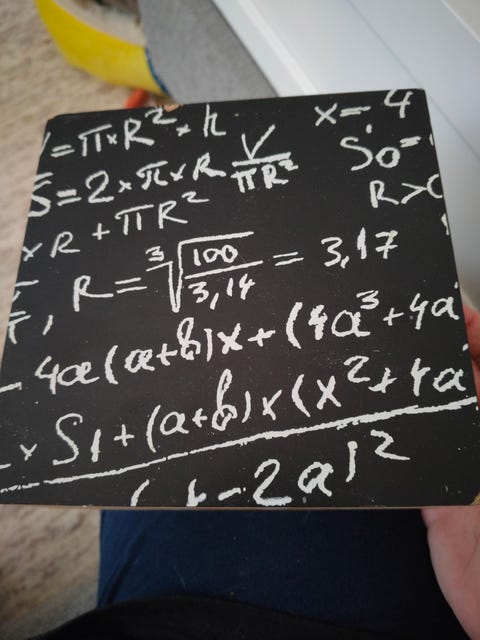 V=π×R²×h x=4
S=2×π×R V/πR² So=
×R+πR² R>0
R=³√100/3,14=3,17
- 4a(a+b)x+(4a³+4a
×S1+(a+b)×(x²+4a
-2a)²